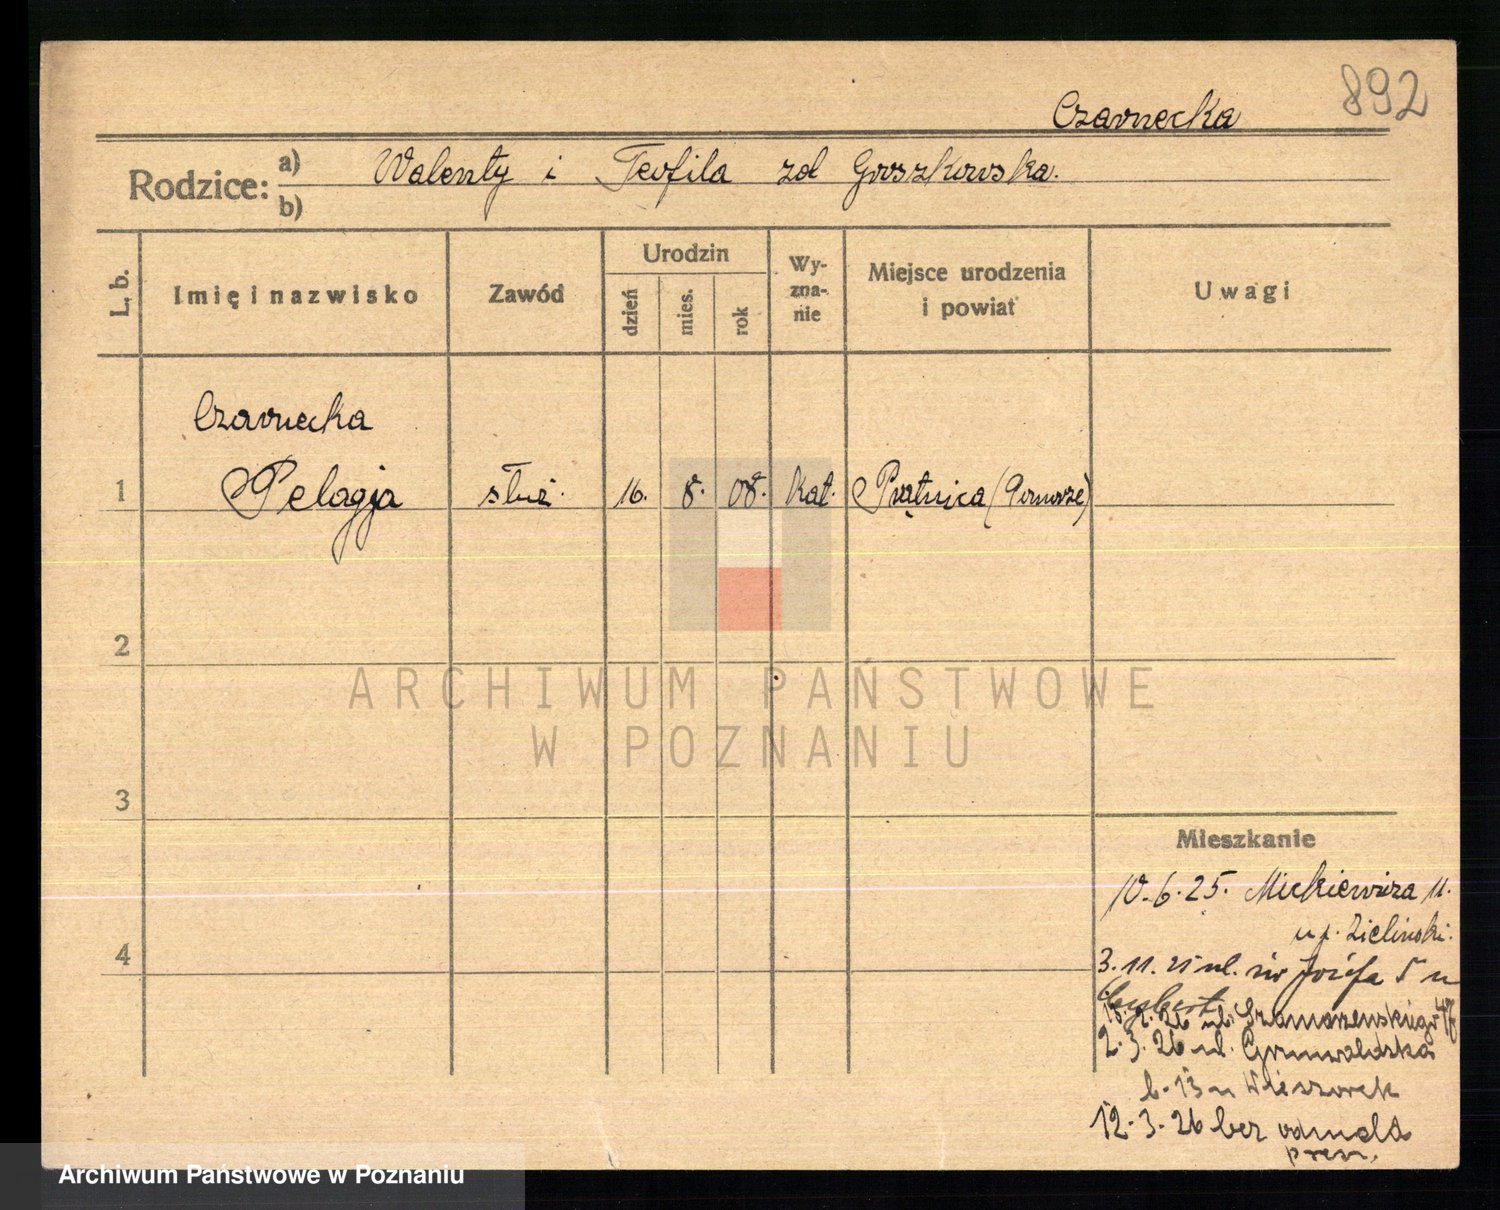 892
Czarnecka
Rodzice: a) Walenty i Teofila zd Groszkowska.
b)
L. b.
Imię i nazwisko
Zawód
Urodzin
dzień
mies.
rok
Wy-
zna-
nie
Miejsce urodzenia
i powiat
Uwagi
Czarnecka
1 Pelagja służ. 16. 8. 08. kat. Prątnica (Pomorze)
2
ARCHIWUM PAŃSTWOWE
W POZNANIU
3
Mieszkanie
10.6.25. Mickiewicza 11.
u p. Zieliński.
4
3.11.25 ul. św Józefa 5 u
2.26 ul. Szamarzewskiego
2.3.26 ul. Grunwaldzka
b. 13 u Wieczorek
12.3.26 bez odmeld
Archiwum Państwowe w Poznaniu